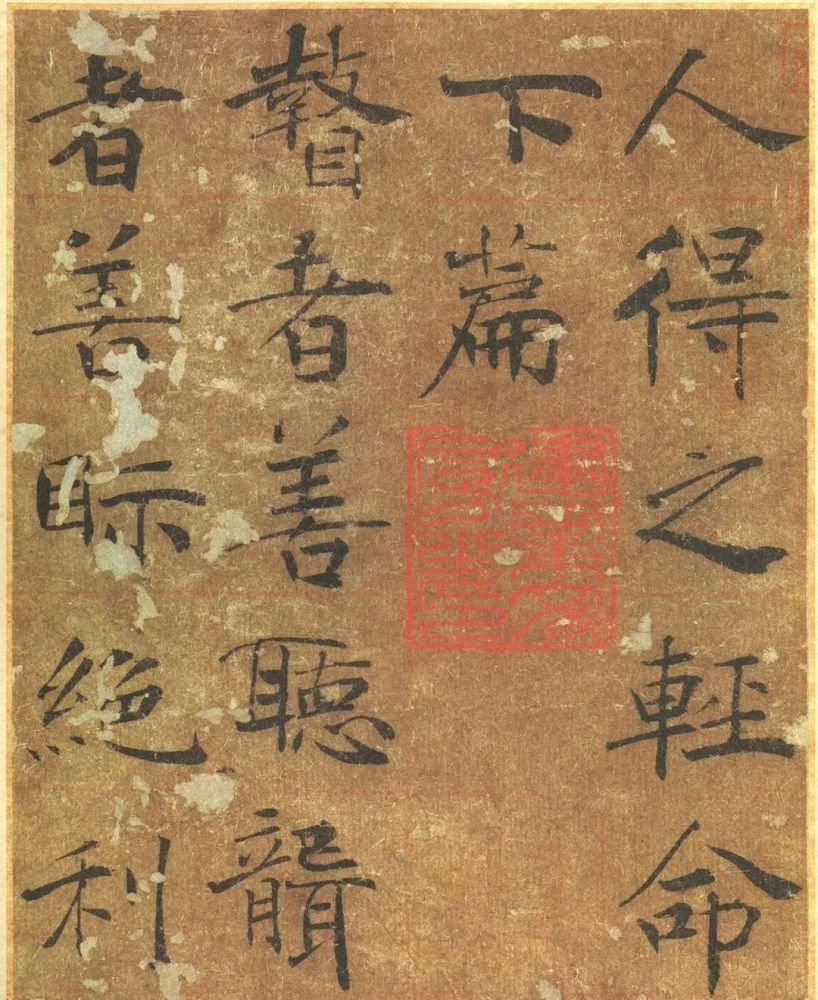 人得之輕命
下篇
瞽者善聽聾
者善眎絕利